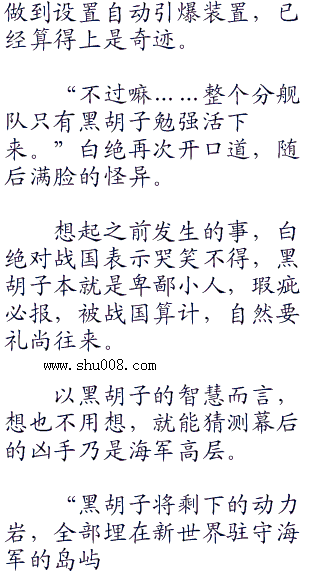 做到设置自动引爆装置，已
经算得上是奇迹。
“不过嘛……整个分舰
队只有黑胡子勉强活下
来。”白绝再次开口道，随
后满脸的怪异。
想起之前发生的事，白
绝对战国表示哭笑不得，黑
胡子本就是卑鄙小人，瑕疵
必报，被战国算计，自然要
礼尚往来。
www.shu008.com
以黑胡子的智慧而言，
想也不用想，就能猜测幕后
的凶手乃是海军高层。
“黑胡子将剩下的动力
岩，全部埋在新世界驻守海
军的岛屿